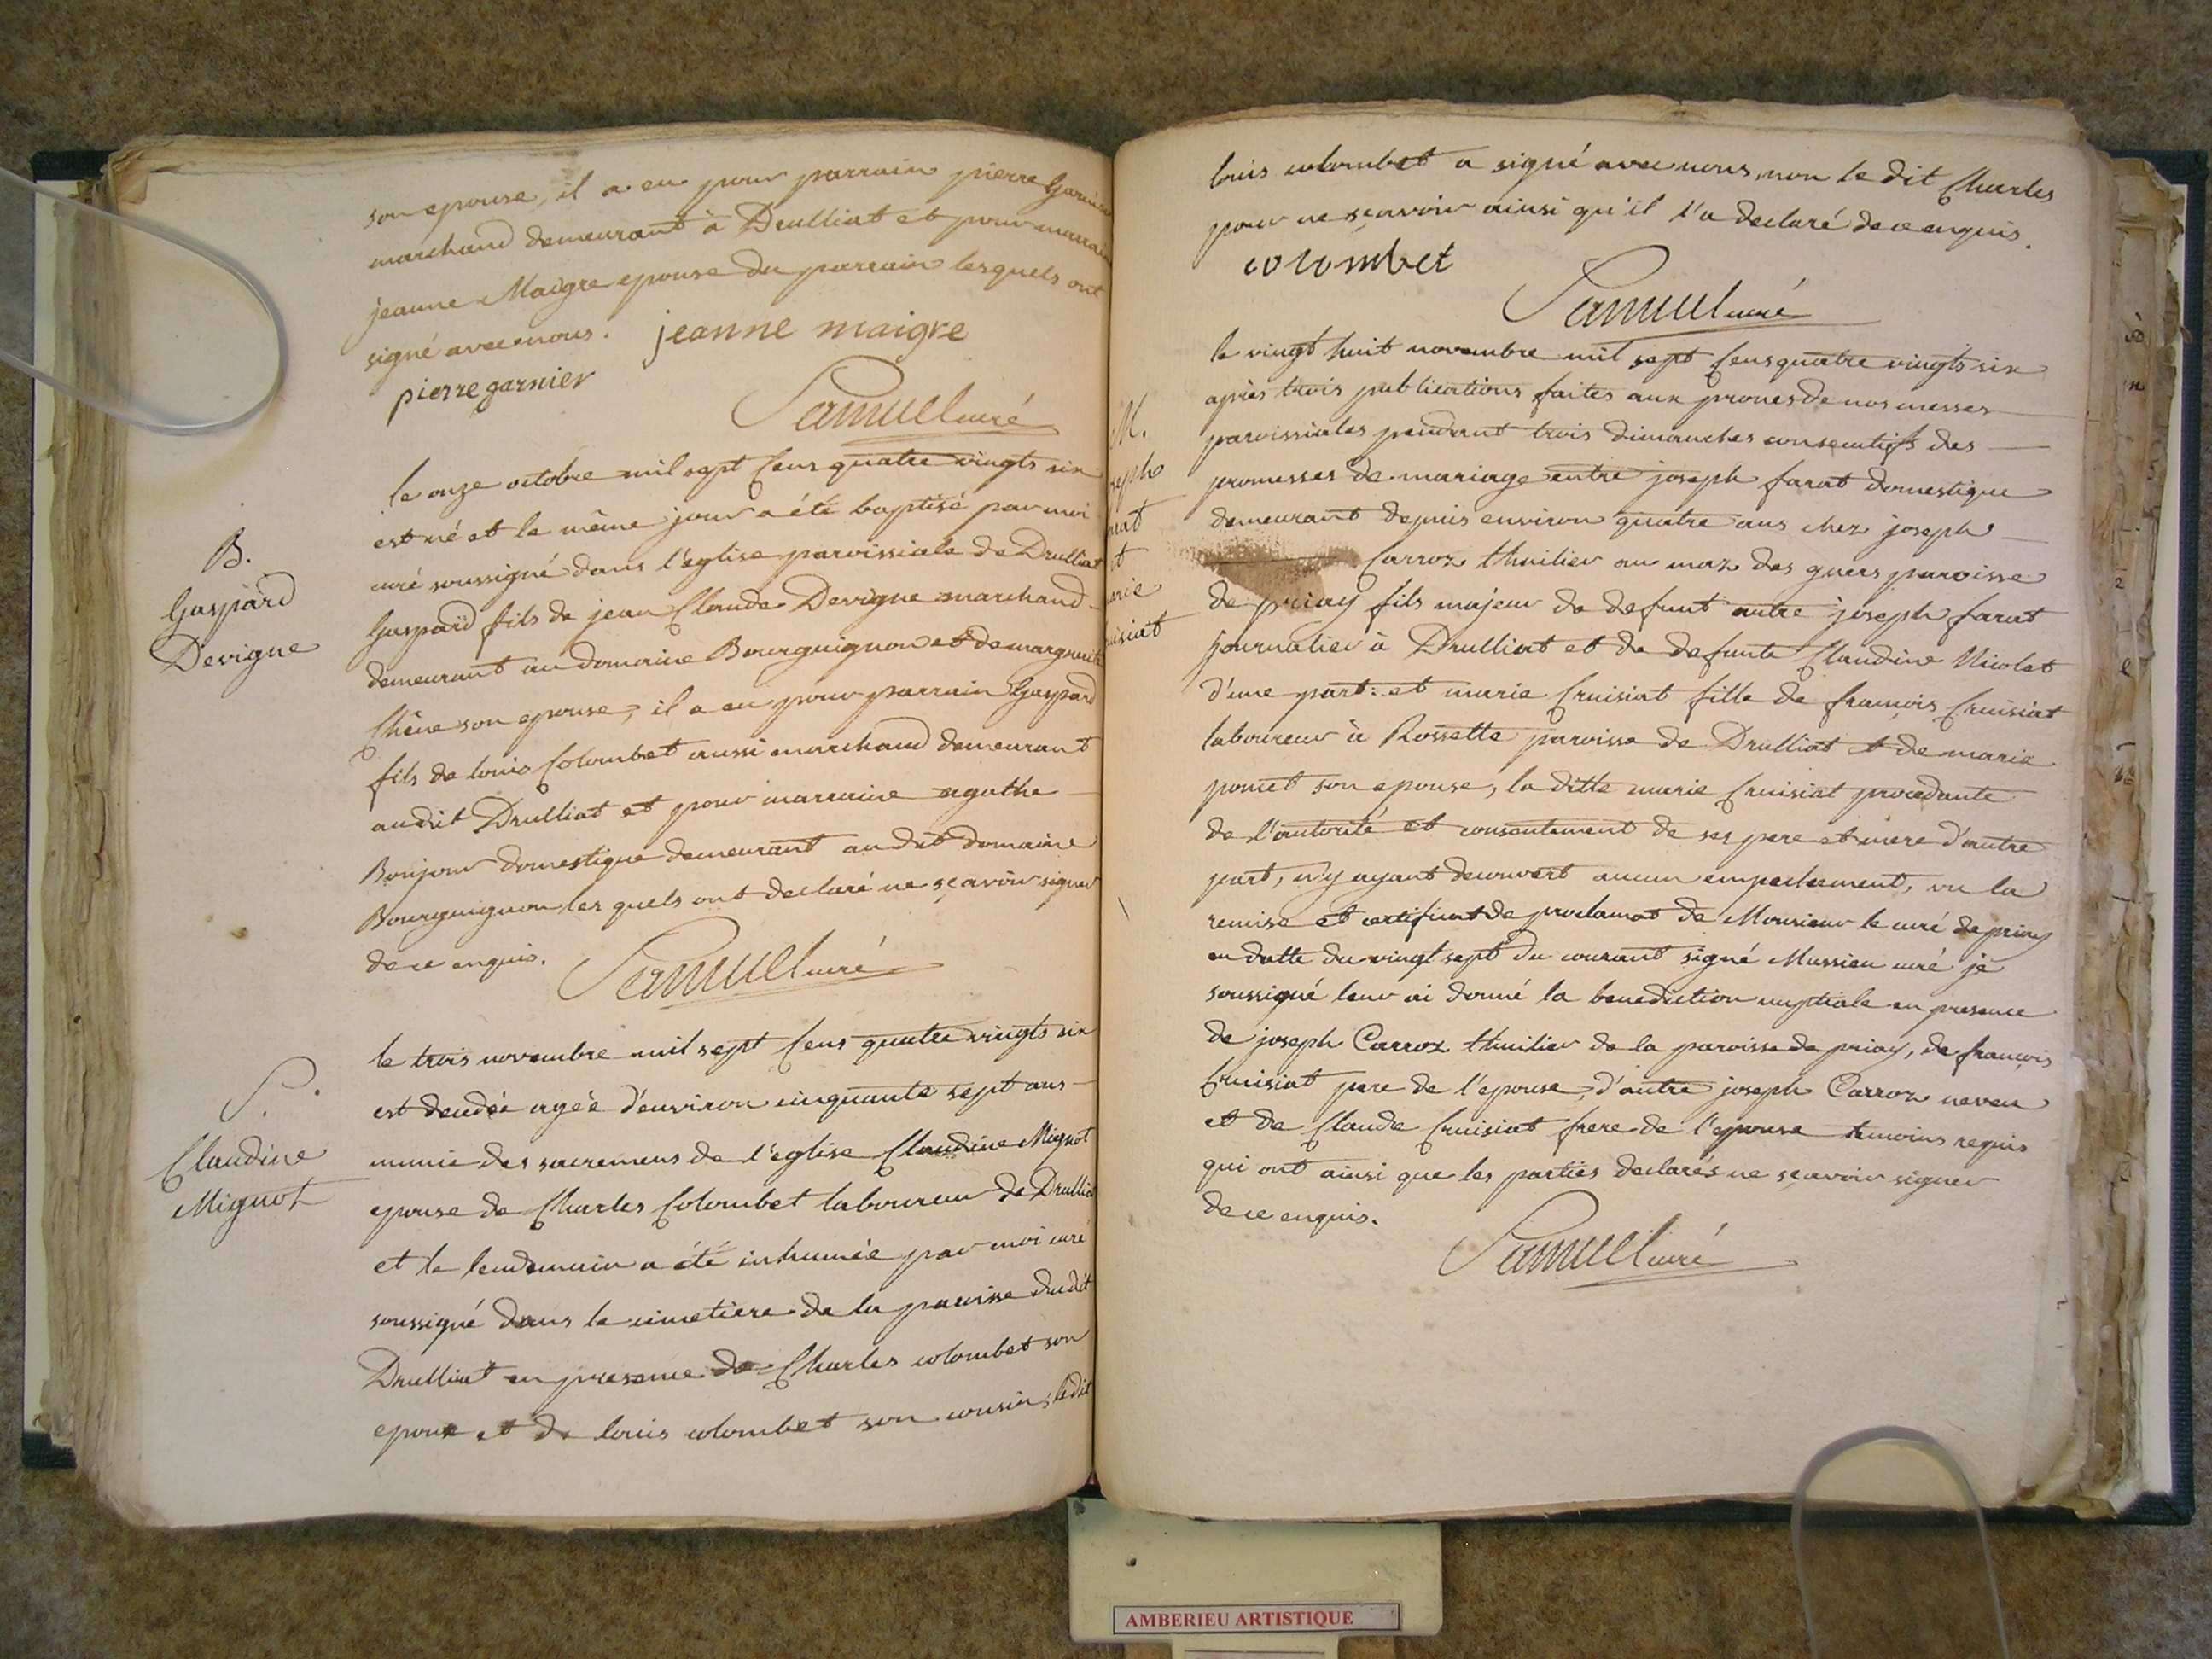 son epouse, il a eu pour parrain pierre Garnier
marchand demeurant à Drulliat et pour marraine
jeanne Maigre epouse du parrain lesquels ont
signé avec nous. jeanne maigre
pierre garnier
Samuel curé
B.
Gaspard
Devigne
le onze octobre mil sept Cens quatre vingts six
est né et le même jour a été baptisé par moi
curé soussigné dans l'eglise paroissiale de Drulliat
Gaspard fils de jean Claude Devigne marchand
demeurant au domaine Bourguignon et de marguerite
Chêne son epouse, il a eu pour parrain Gaspard
fils de louis Colombet aussi marchand demeurant
audit Drulliat et pour marraine agathe
Bonjour domestique demeurant au dit domaine
Bourguignon les quels ont declaré ne sçavoir signer
de ce enquis.
Samuel curé
S.
Claudine
Mignot
le trois novembre mil sept Cens quatre vingts six
est decedée agée d'environ cinquante sept ans
munie des sacremens de l'eglise Claudine Mignot
epouse de Charles Colombet laboureur de Drulliat
et le lendemain a été inhumée par moi curé
soussigné dans le cimetiere de la paroisse dudit
Drulliat en presence de Charles colombet son
epoux et de louis colombet son cousin, ledit
louis colombet a signé avec nous, non le dit Charles
pour ne sçavoir ainsi qu'il l'a declaré de ce enquis.
colombet
Samuel curé
M.
seph
rat
t
arie
uisiat
le vingt huit novembre mil sept Cens quatre vingts six
après trois publications faites aux prones de nos messes
paroissiales pendant trois dimanches consecutifs des
promesses de mariage entre joseph farat domestique
demeurant depuis environ quatre ans chez joseph
Carroz thuilier au maz des guers paroisse
de priay fils majeur de defunt autre joseph farat
journalier à Drulliat et de defunte Claudine Nicolet
d'une part: et marie Cruisiat fille de françois Cruisiat
laboureur à Rossette paroisse de Drulliat et de marie
poncet son epouse, la ditte marie Cruisiat procedante
de l'autorité et consentement de ses pere et mere d'autre
part, n'y ayant decouvert aucun empechement, vu la
remise et certificat de proclamat de Monsieur le curé de priay
en datte du vingt sept du courant signé Mussieu curé je
soussigné leur ai donné la benediction nuptiale en presence
de joseph Carroz thuilier de la paroisse de priay, de françois
Cruisiat pere de l'epouse, d'autre joseph Carroz neveu
et de Claude Cruisiat frere de l'epouse temoins requis
qui ont ainsi que les parties declarés ne sçavoir signer
de ce enquis.
Samuel curé
AMBERIEU ARTISTIQUE